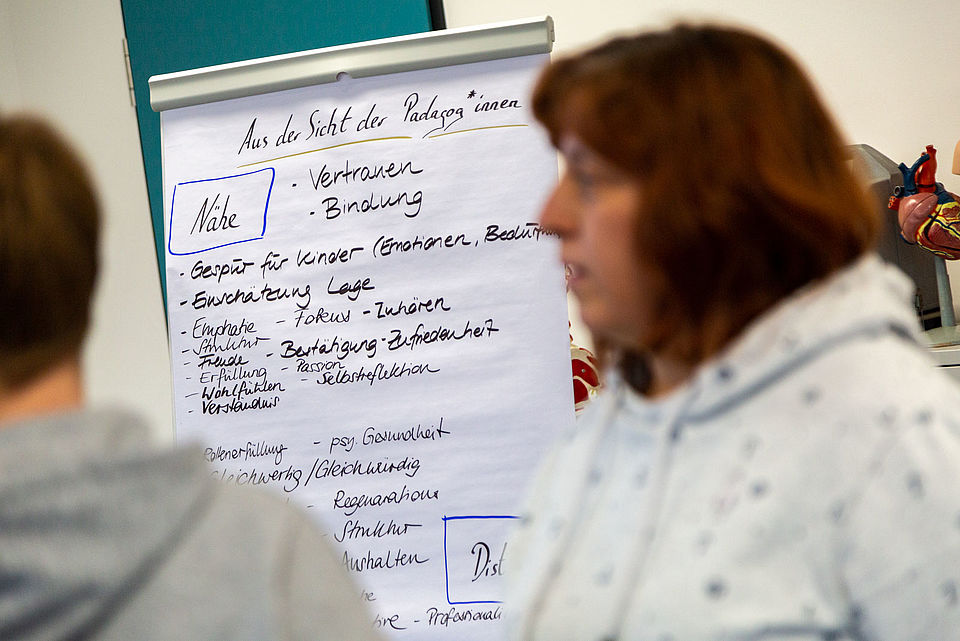 Aus der Sicht der Pädagog*innen
Nähe
- Vertrauen
- Bindung
- Gespür für Kinder (Emotionen,
- Einschätzung Lage
- Emphatie - Fokus - Zuhören
- Struktur
- Freude - Bestätigung - Zufriedenheit
- Erfüllung - Passion
- Wohlfühlen - Selbstreflektion
- Verständnis
Rollenerfüllung - psy. Gesundheit
Gleichwertig / Gleichwürdig
- Regenaration
- Struktur
Aushalten
Dist